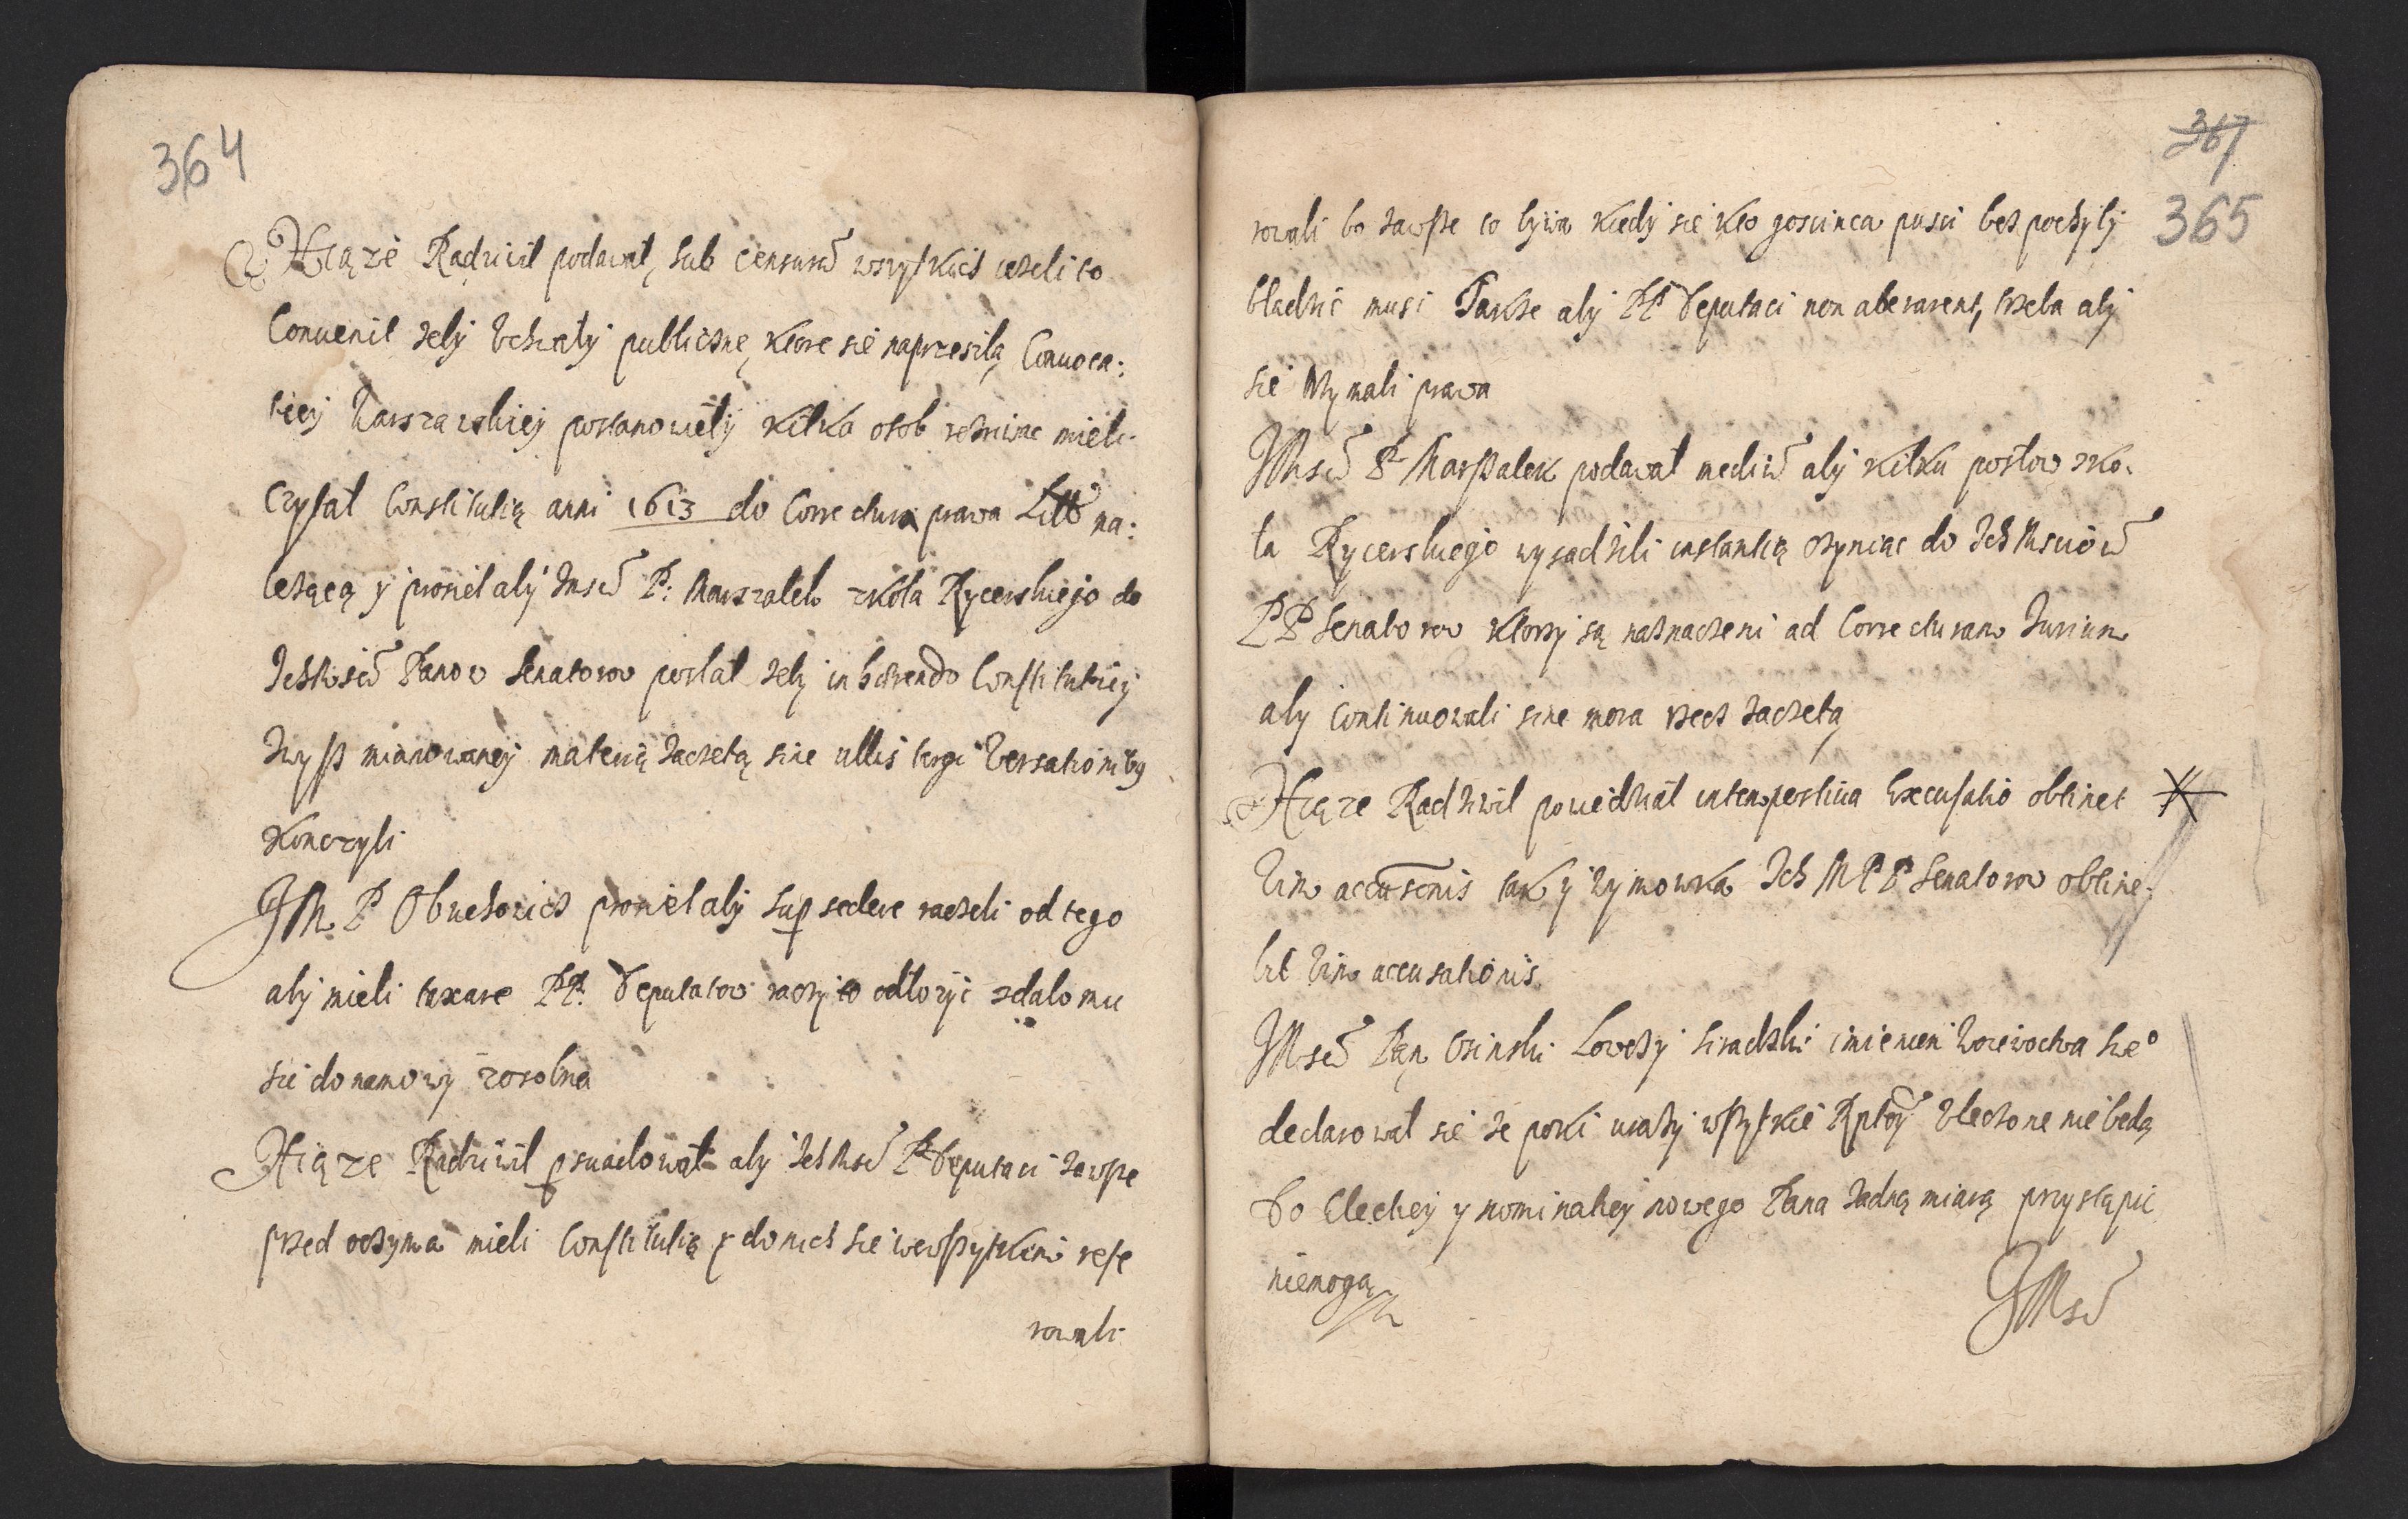 364
Xiąze Radziwil podawał, sub censurą wszytkich iezeli to
Conuenit zeby Uchwały publiczne, ktore się na przeszłą Conuoca:
tiey Warszawskiey postanowiły kilka osob rozrywac mieli
Czytał Constitutią anni 1613 do Correctura prawa Litto na:
lezącą y prosieł aby Jmsć P: Marszalek zkoła Rycerskiego do
Ichmsciow Panow Senatorow posłał zeby inhærendo Constitutiey
zwysz mianowaney materią zaczetą sine ullis tergi Versationibus
konczyli
JM P Obuchowicz prosieł aby supersedere raczeli od tego
aby mieli taxare PP. Deputatow raczy to odłozyć zdało mu
się do namowy zosobna
Xiąze Radziwił persuadował aby Ichmsć PP Deputaci zawsze
przed oczyma mieli Constitutią y do niech się wewszytkim refe
rowali
367
365
rowali bo zawsze to bywa kiedy sie kto goscinca pusci bez pochyby
bładzic musi Takze aby PP Deputaci non aberrarent, trzeba aby
się trzymali prawa
JMsć P Marszalek podawał mediu aby kilku posłow zko:
ła Rycerskiego wysadzili instantią czyniąc do Ich Msciow
PP Senatorow ktorzy są naznaczeni ad Correcturam Jurium
aby Continuowali sine mora rzecz zaczetą
Xiąze Radziwił powiedział intempestiua Excusatio obtinet
Vim accusonis tak y wymowka Ich M PP Senatorow obtine:
bit Vim accusationis
JMsć Pan Osinski Lowczy Siradzki imieniem Woiewoctwa Sweo
declarował sie ze poki urazy wszytkie Rptey Uleczone nie bedą
Do Electiey y nominatiey nowego Pana zadną miarą przystąpic
niemogą
JMsć